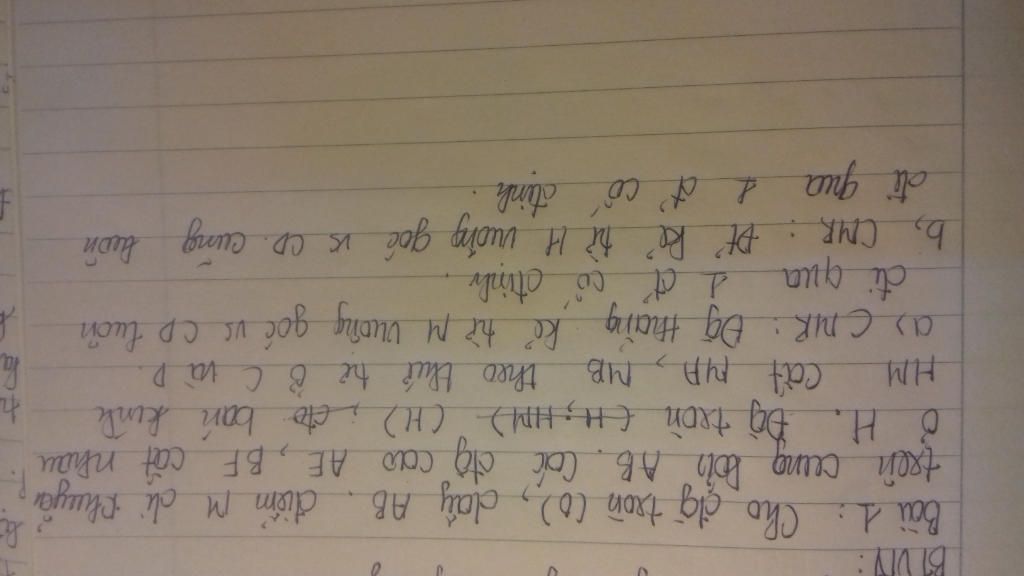 BTVN:
Bài 1: Cho đg tròn (O), dây AB. điểm M di chuyển
trên cung lớn AB. Các đg cao AE, BF cắt nhau
ở H. Đg tròn (H; HM) (H), bán kính
HM cắt MA, MB theo thứ tự ở C và D.
a) CMR: Đg thẳng kẻ từ M vuông góc vs CD luôn
đi qua 1 đ' cố định.
b, CMR: Đt' kẻ từ H vuông góc vs CD cũng luôn
đi qua 1 đ' cố định.